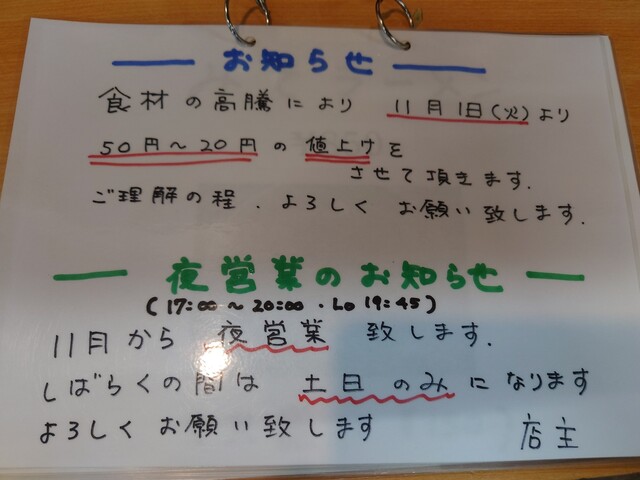 お知らせ
食材の高騰により 11月1日(火)より
50円～20円の値上げを
させて頂きます.
ご理解の程.よろしくお願い致します.
夜営業のお知らせ
(17:00～20:00・Lo 19:45)
11月から 夜営業 致します.
しばらくの間は 土日のみになります
よろしくお願い致します
店主